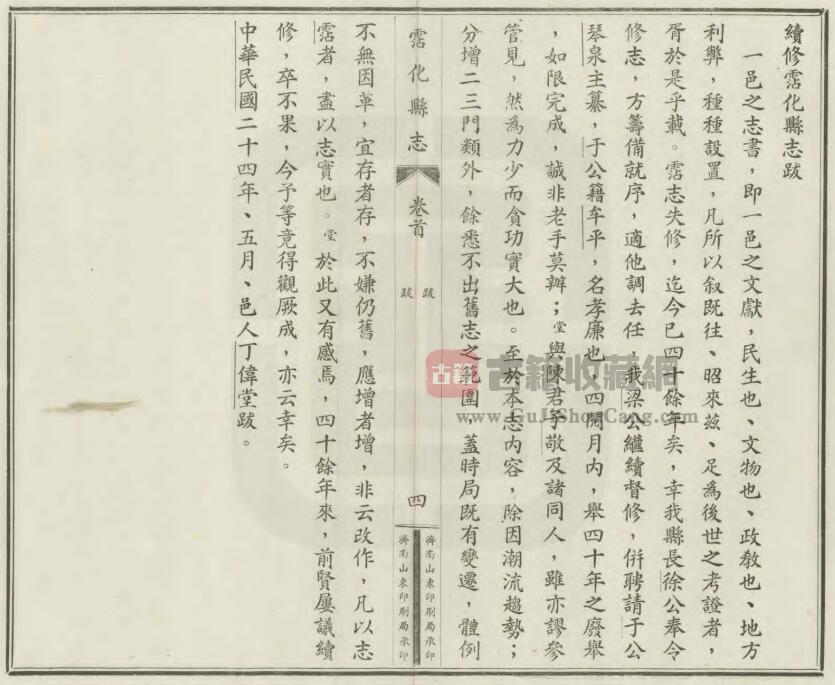 續修霑化縣志跋
一邑之志書，即一邑之文獻，民生也、文物也、政教也、地方
利弊，種種設置，凡所以叙既往、昭來茲、足為後世之考證者，
胥於是乎載。霑志失修，迄今已四十餘年矣，幸我縣長徐公奉令
修志，方籌備就序，適他調去任，我梁公繼續督修，併聘請于公
琴泉主纂，于公籍牟平，名孝廉也，四閱月內，舉四十年之廢舉
，如限完成，誠非老手莫辦；堂與陳君子敬及諸同人，雖亦謬參
管見，然為力少而貪功實大也。至於本志內容，除因潮流趨勢；
分增二三門類外，餘悉不出舊志之範圍，蓋時局既有變遷，體例
霑化縣志
卷首
跋
跋
四
濟南山東印刷局承印
濟南山東印刷局承印
不無因革，宜存者存，不嫌仍舊，應增者增，非云改作，凡以志
霑者，盡以志實也。堂於此又有感焉，四十餘年來，前賢屢議續
修，卒不果，今予等竟得觀厥成，亦云幸矣。
中華民國二十四年、五月、邑人丁偉堂跋。
古籍
古籍收藏網
www.GuJiShouCang.com